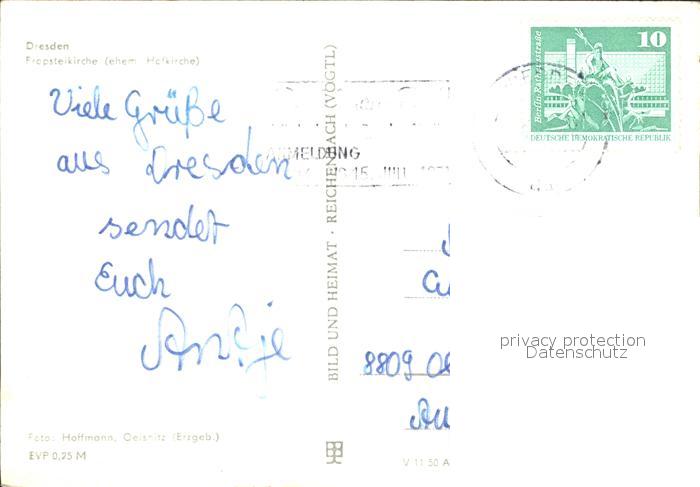 Dresden
Propsteikirche (ehem. Hofkirche)
Viele Grüße
aus Dresden
sendet
Euch
Antje
Foto: Hoffmann, Oelsnitz (Erzgeb.)
EVP 0,25 M
BILD UND HEIMAT · REICHENBACH (VOGTL)
MELDUNG
15. JUNI
10
Berlin-Rathausstraße
DEUTSCHE DEMOKRATISCHE REPUBLIK
8809
V 11 50 A
privacy protection
Datenschutz